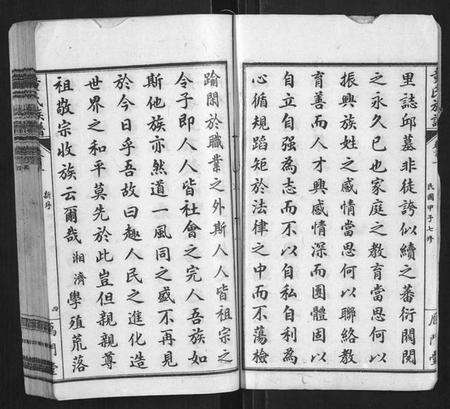 里誌邱墓非徒誇似續之蕃衍閥閱
之永久已也家庭之教育當思何以
振興族姓之感情當思何以聯絡教
育善而人才興感情深而團體固以
自樹立自強為志而不以自私自利為
心循規蹈矩於法律之中而不蕩檢
民國甲子七修
踰閑於職業之外斯人人皆祖宗之
令子即人人皆社會之完人吾族如
斯他族亦然道一風同之盛不再見
於今日乎吾故曰趣人民之進化造
世界之和平莫先於此豈但親親尊
祖敬宗收族云爾哉湘濟學殖荒落
新序
四